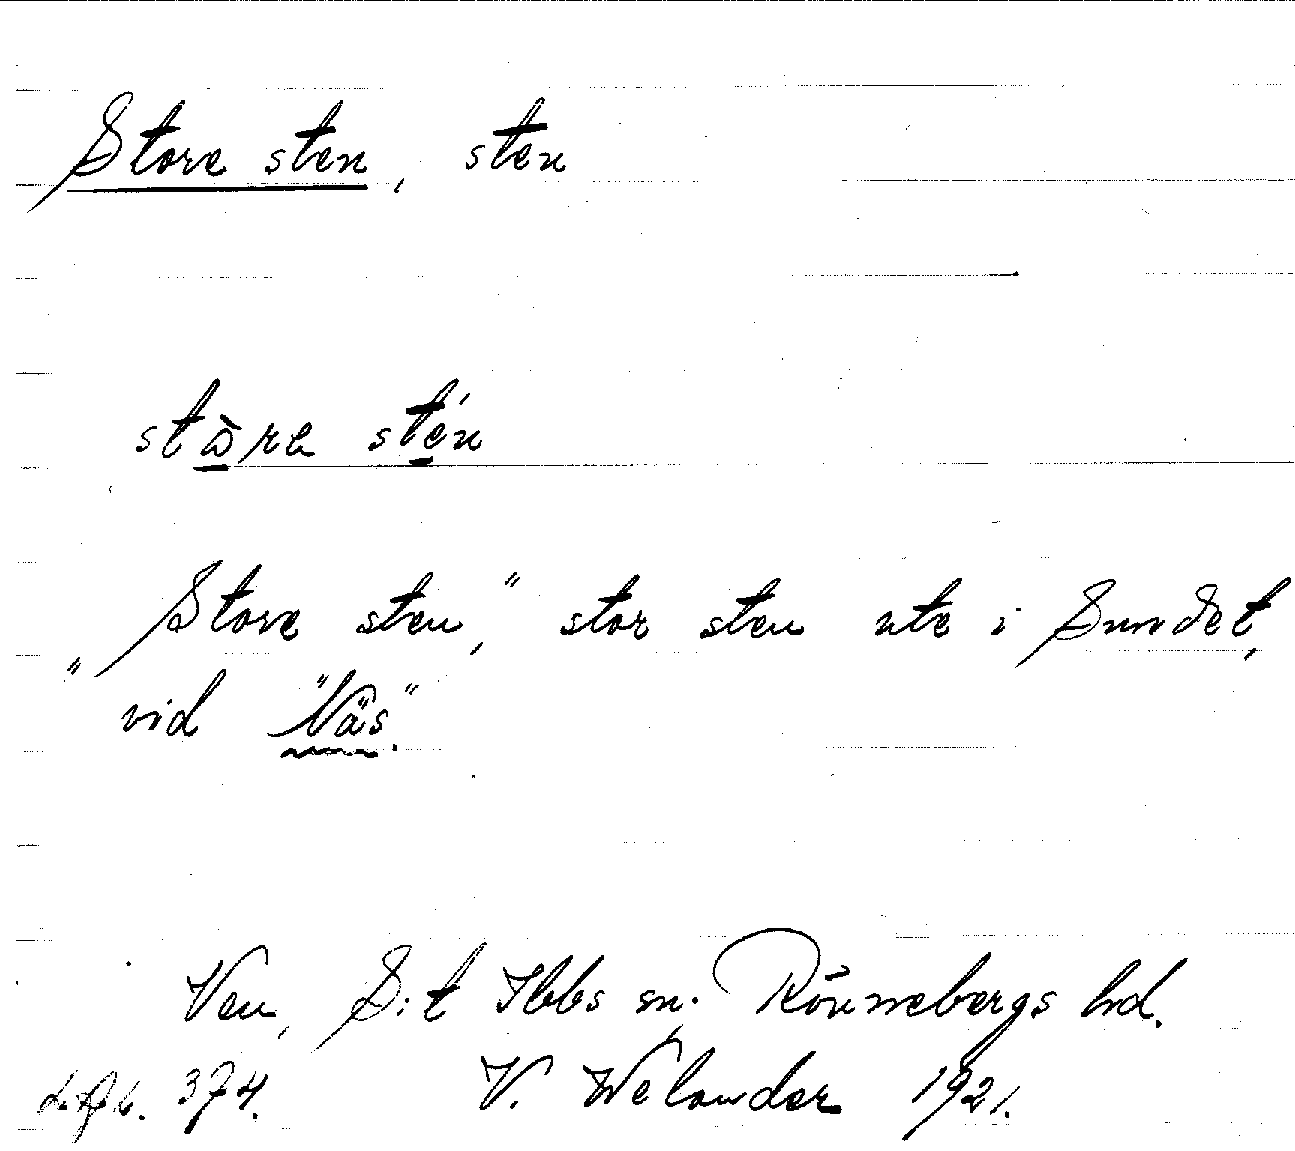 Store sten, sten
stòre stén
"Store sten," stor sten ute i Sundet,
vid "Näs".
Ven, S:t Ibbs sn. Rönnebergs hd.
374. V. Welander 1921.